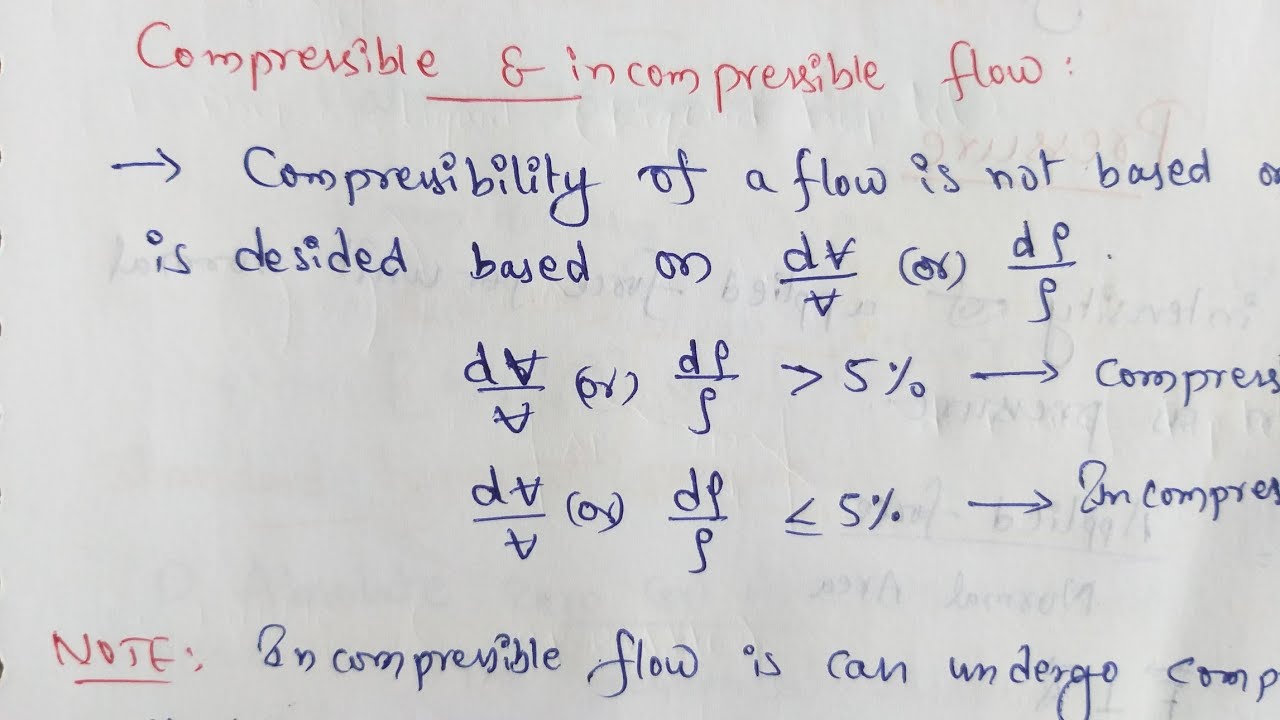 Compressible & incompressible flow:
→ Compressibility of a flow is not based o
is desided based on d∀/∀ (or) dρ/ρ.
d∀/∀ (or) dρ/ρ > 5% → compress
d∀/∀ (or) dρ/ρ ≤ 5% → Incompres
NOTE: Incompressible flow is can undergo comp